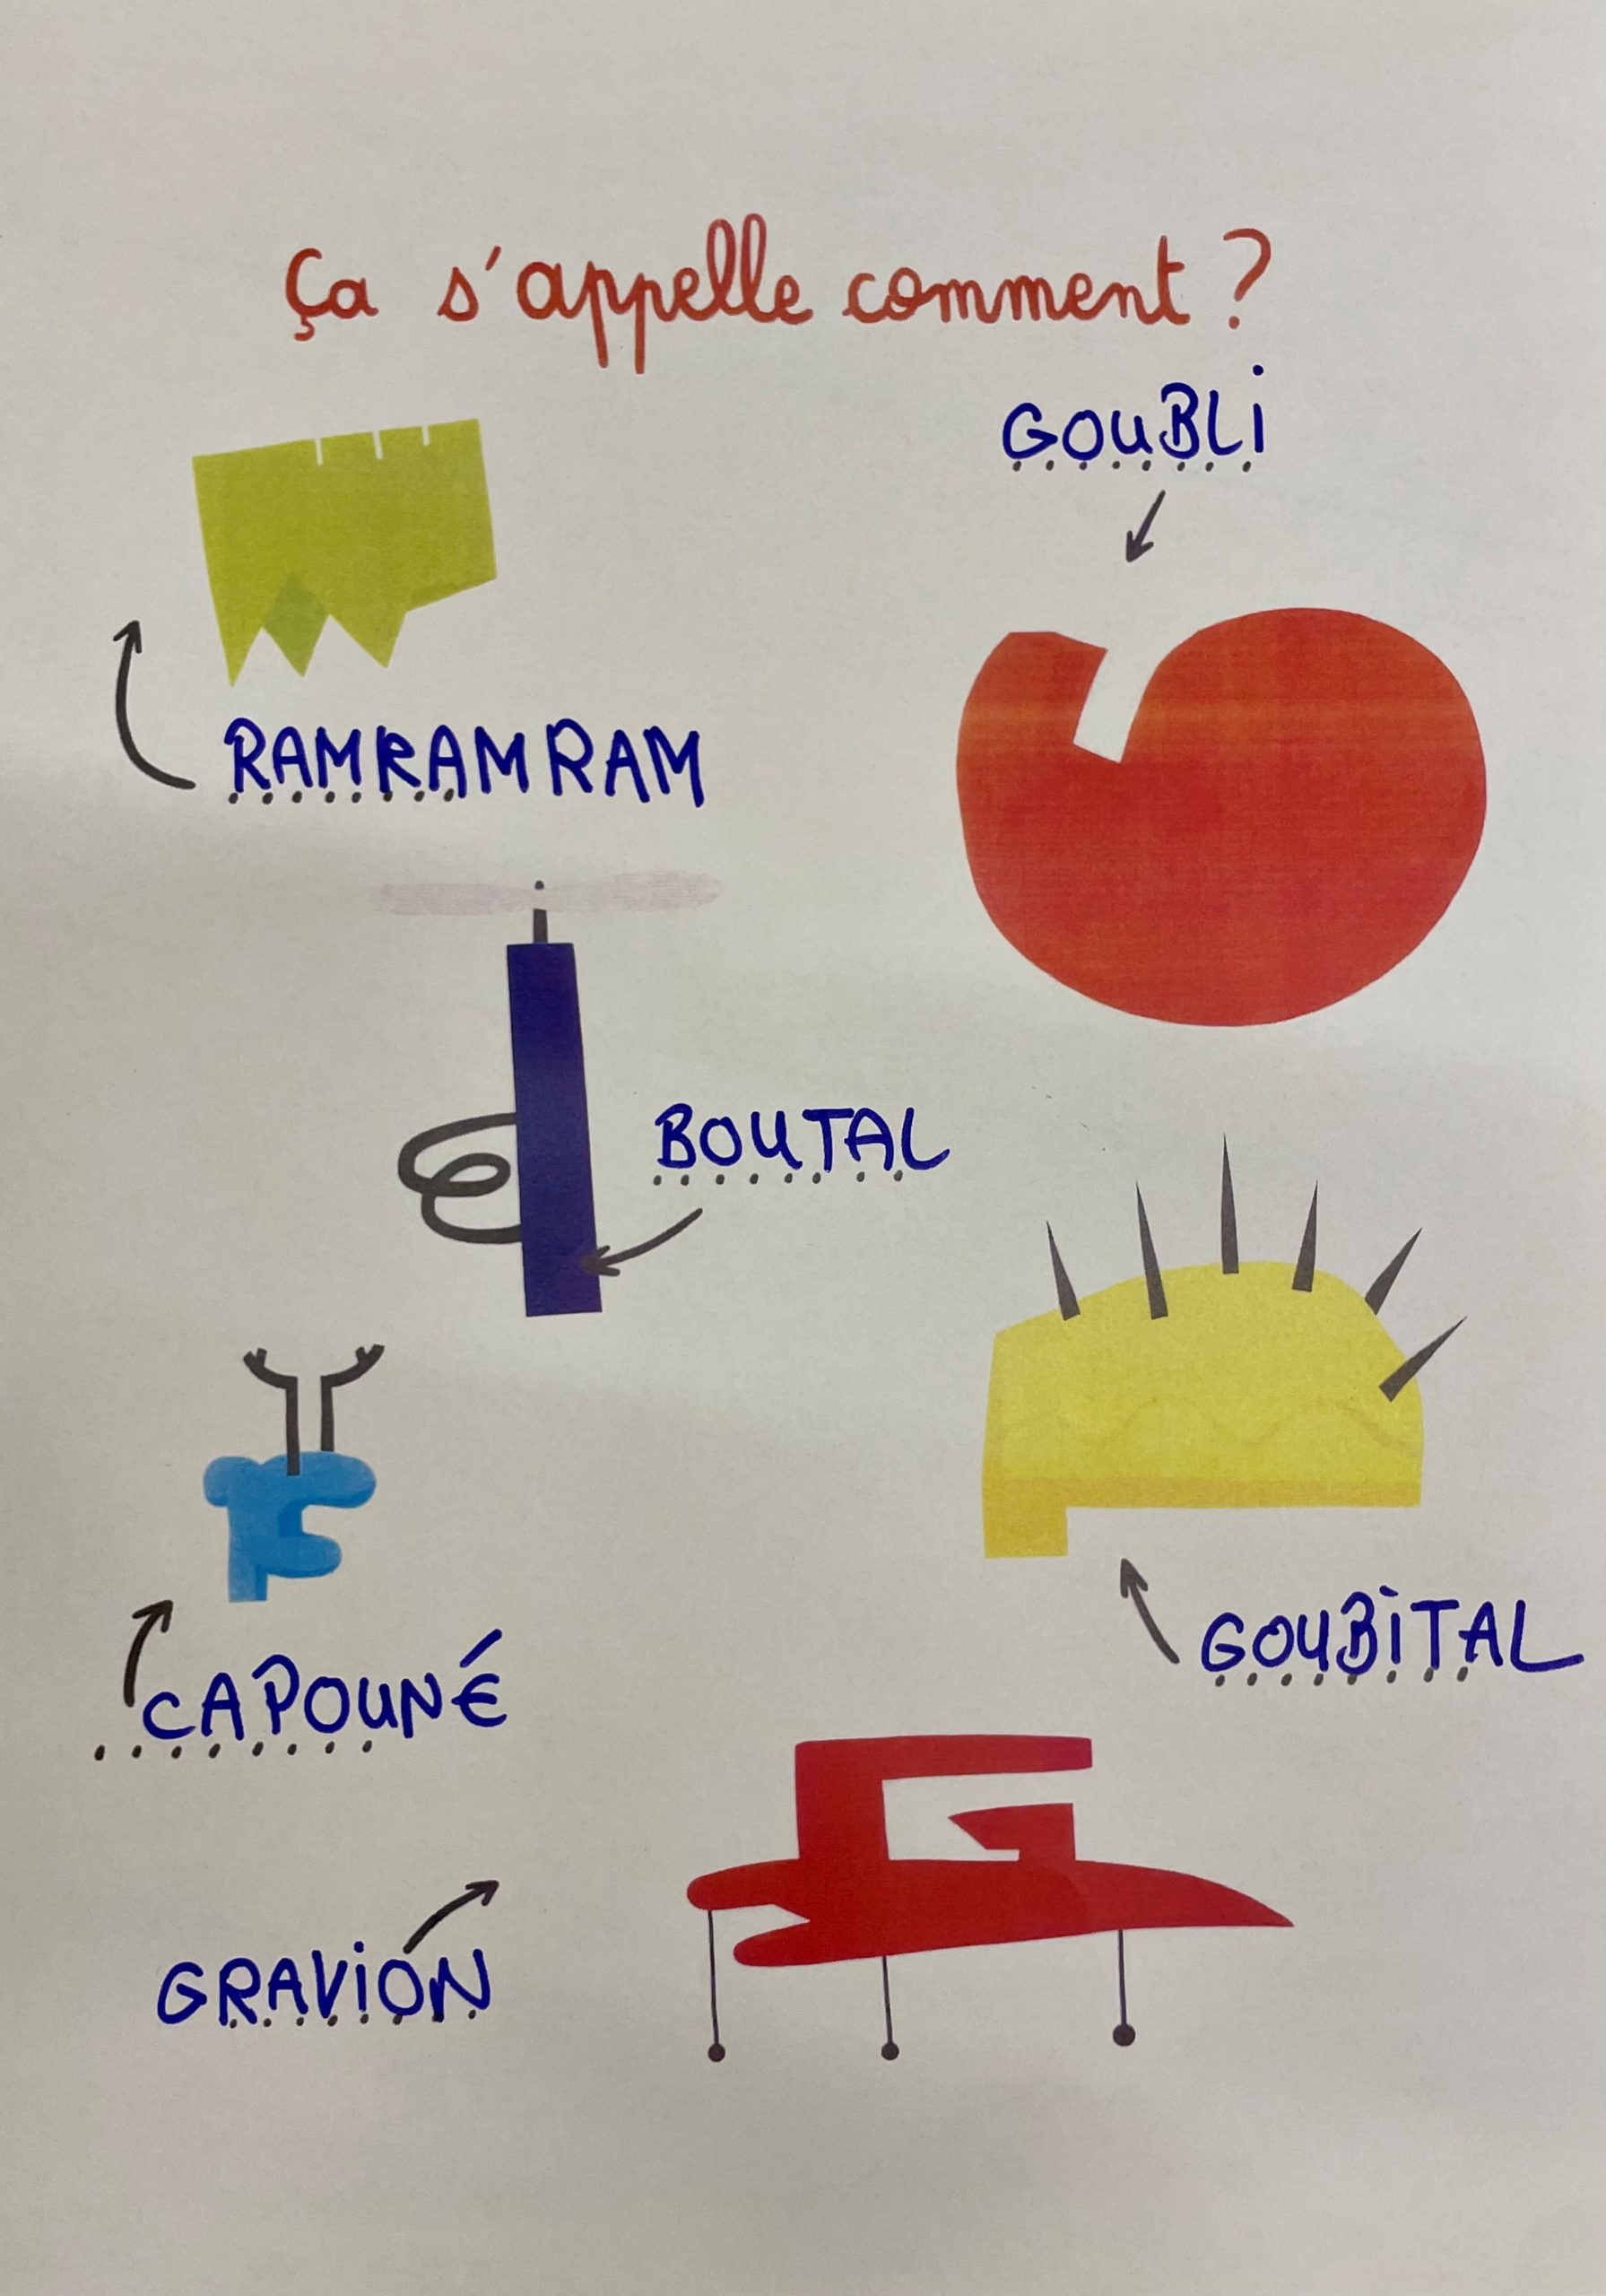 Ça s'appelle comment ?
GOUBLi
RAMRAMRAM
BOUTAL
GOUBiTAL
CAPOUNÉ
GRAViON